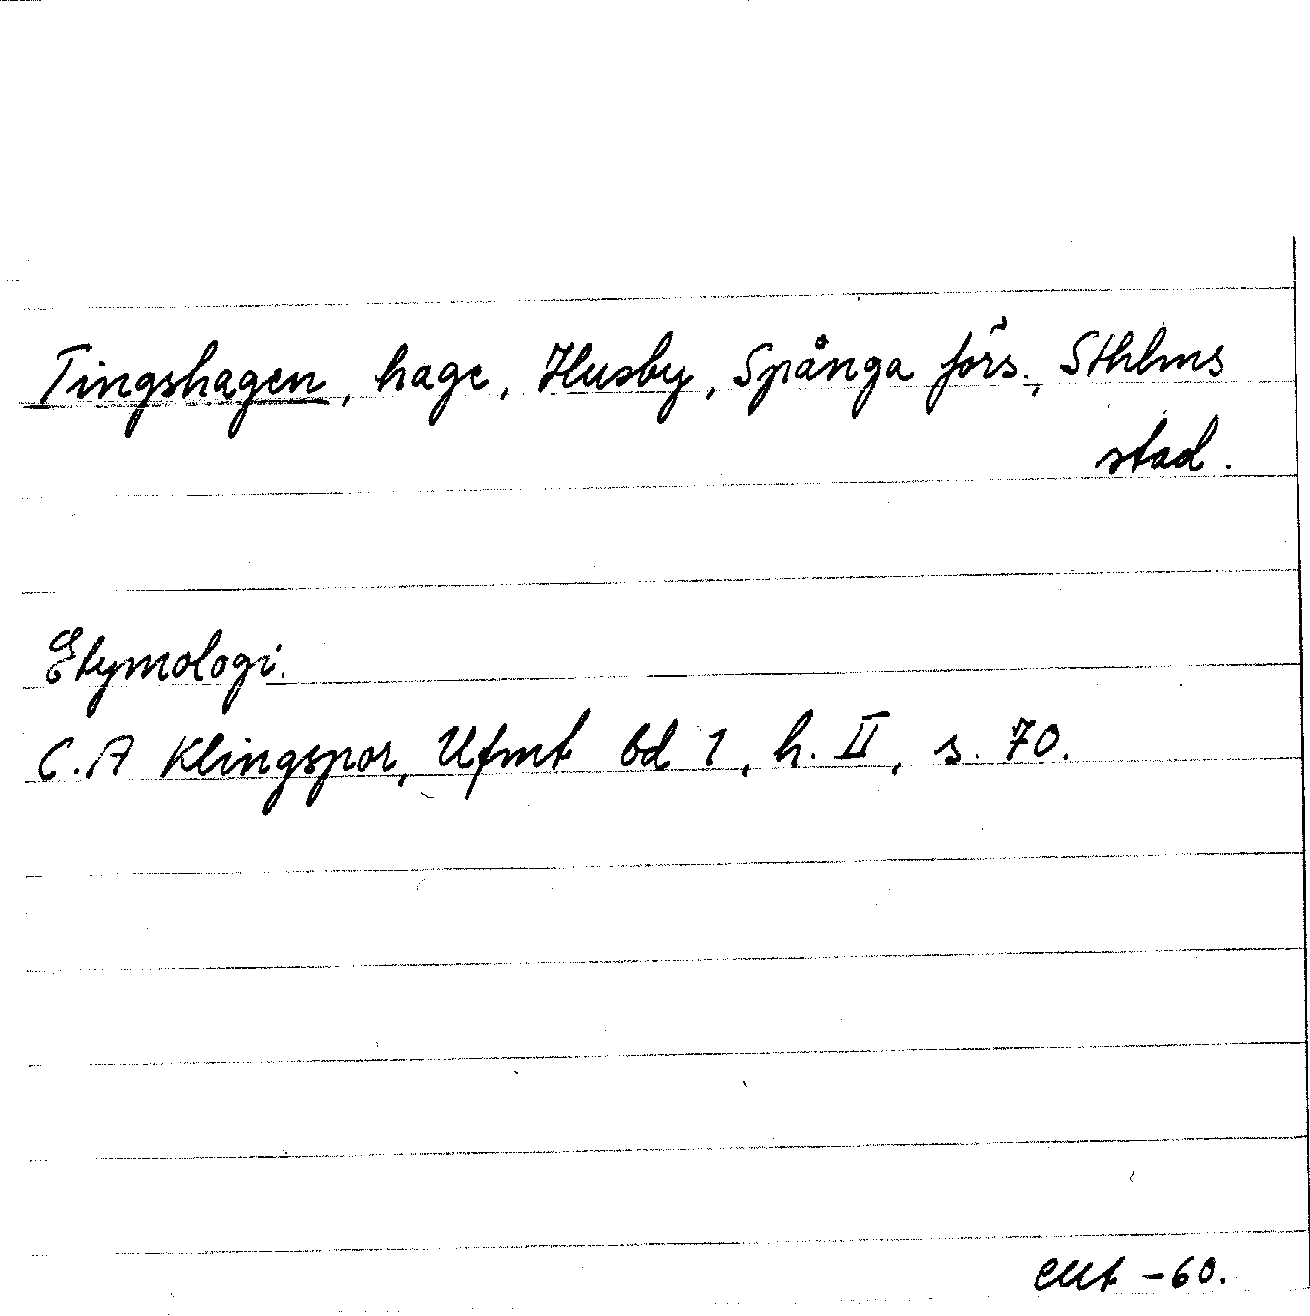 Tingshagen, hage, Husby, Spånga förs., Sthlms
stad.
Etymologi.
C.A Klingspor, Ufmt bd 1, h. II, s. 70.
-60.